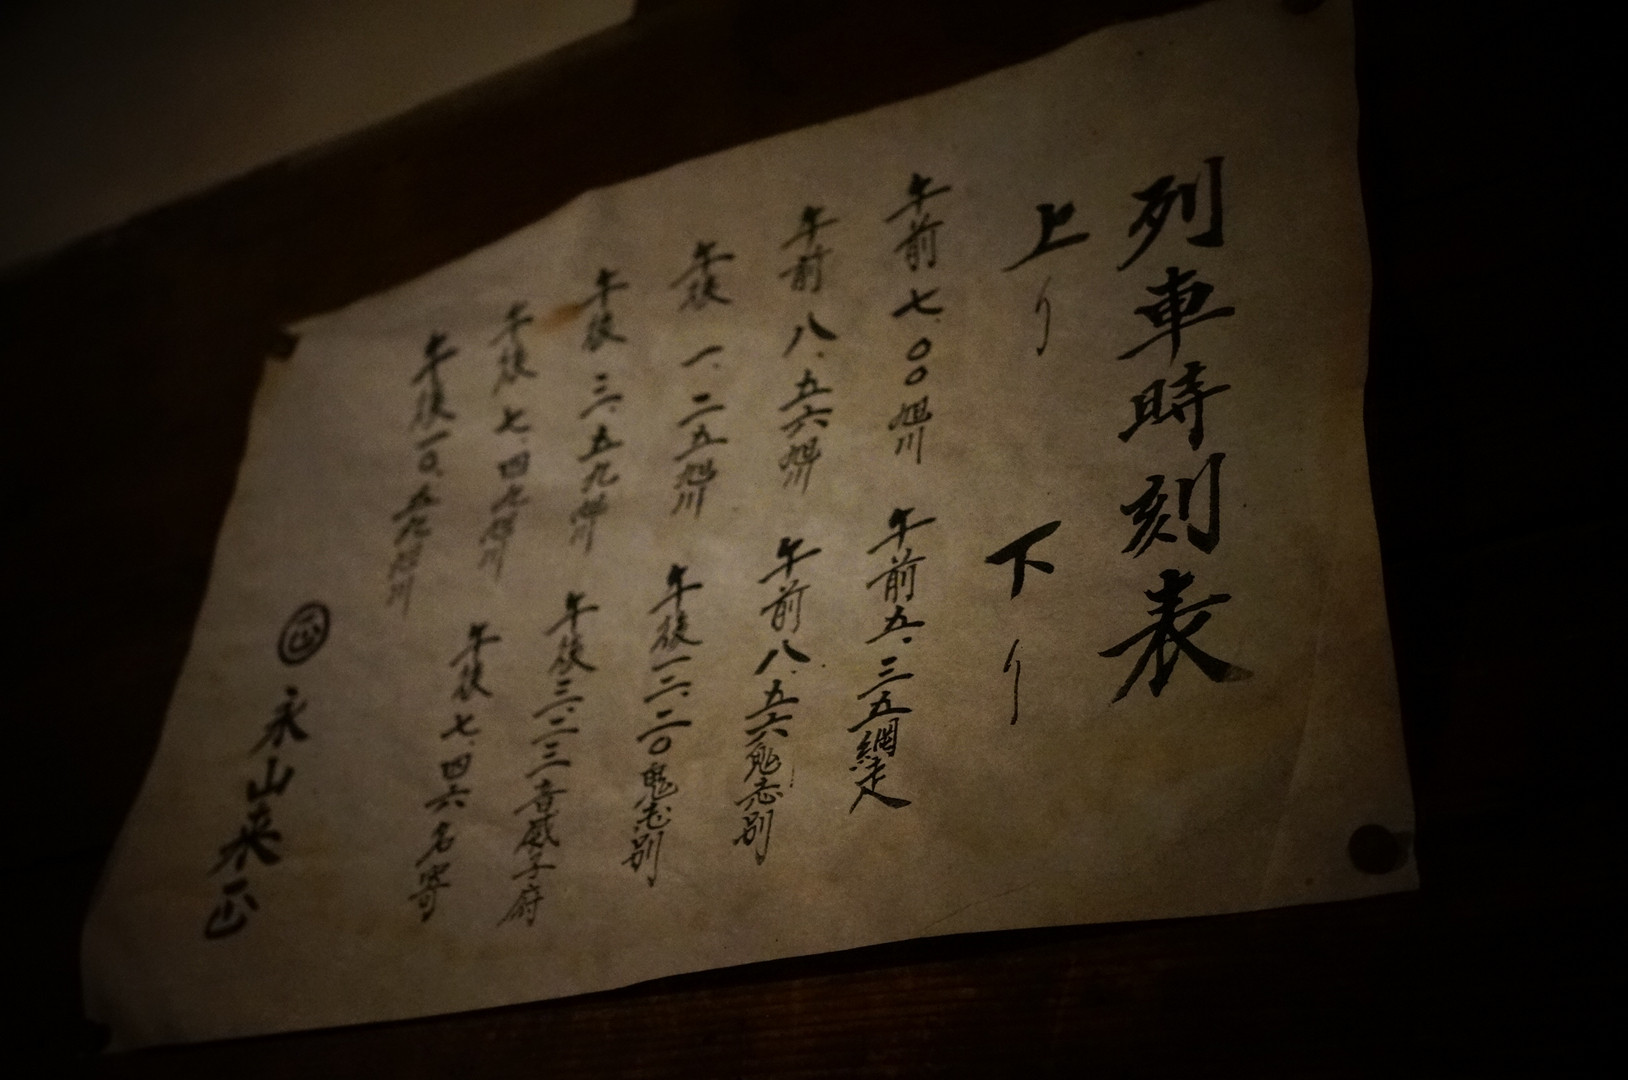 列車時刻表
上り
午前七.〇〇旭川
午前八.五六旭川
午後一.二五旭川
午後三.五九旭川
午後七.四九旭川
午後一〇.五九旭川
下り
午前五.三五網走
午前八.五六鬼志別
午後一二.二〇鬼志別
午後三.二三音威子府
午後七.四六名寄
㊣永山来正